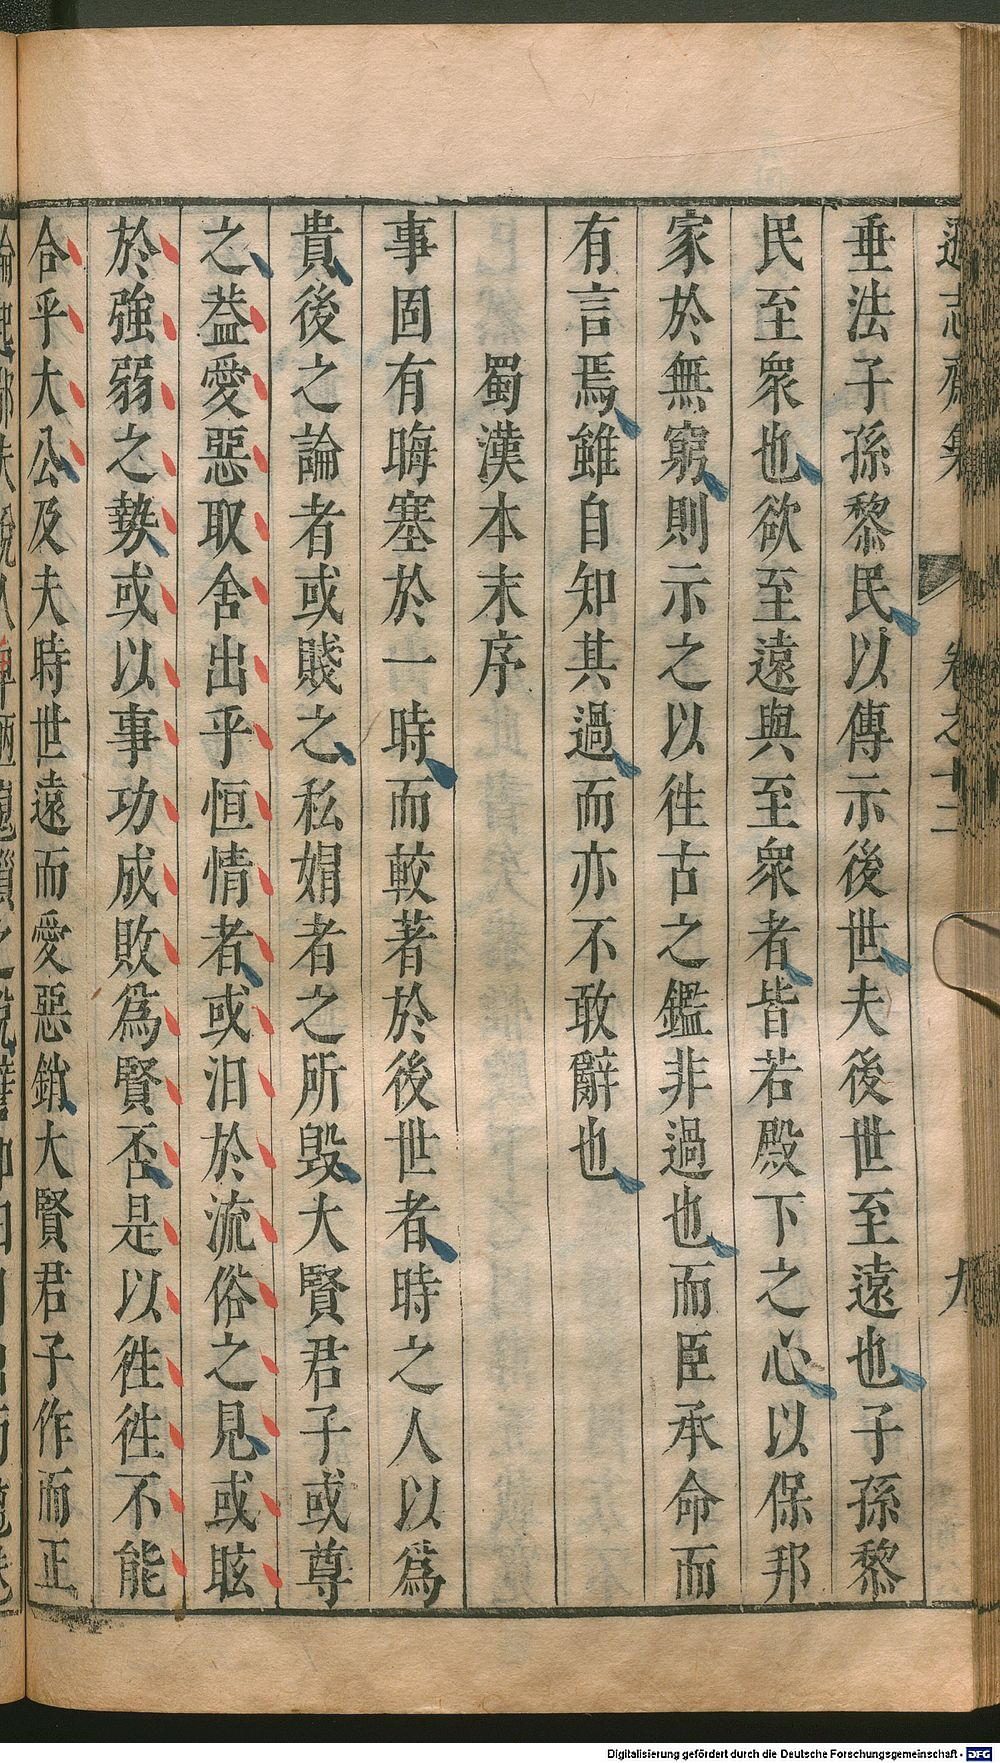 遜志齋集 卷之十二 九
垂法子孫黎民以傳示後世夫後世至遠也子孫黎
民至衆也欲至遠與至衆者皆若殿下之心以保邦
家於無窮則示之以徃古之鑑非過也而臣承命而
有言焉雖自知其過而亦不敢辭也
蜀漢本末序
事固有晦塞於一時而較著於後世者時之人以爲
貴後之論者或賤之私娟者之所毁大賢君子或尊
之葢愛惡取舍出乎恒情者或汩於流俗之見或眩
於強弱之勢或以事功成敗爲賢否是以徃徃不能
合乎大公及夫時世遠而愛惡銷大賢君子作而正
Digitalisierung gefördert durch die Deutsche Forschungsgemeinschaft - DFG